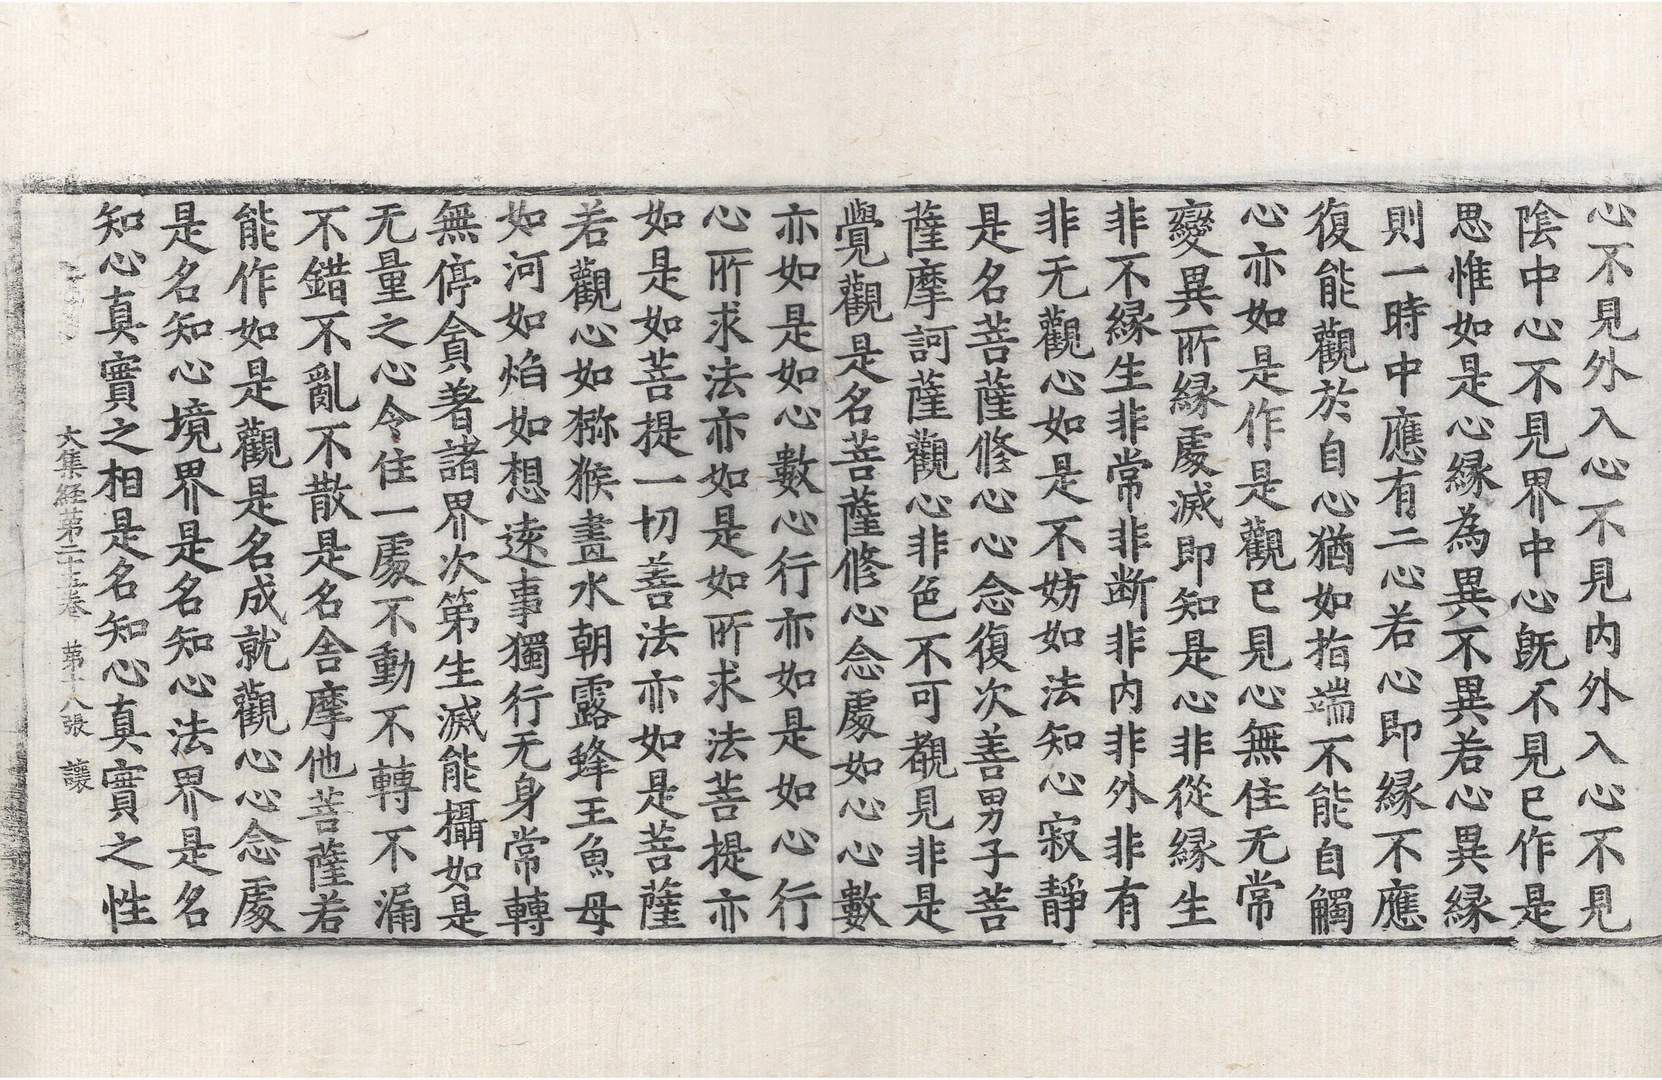 心不見外入心不見內外入心不見
陰中心不見界中心旣不見已作是
思惟如是心縁為異不異若心異縁
則一時中應有二心若心即縁不應
復能觀於自心猶如指端不能自觸
心亦如是作是觀已見心無住无常
變異所縁處滅即知是心非從縁生
非不縁生非常非断非內非外非有
非无觀心如是不妨如法知心寂靜
是名菩薩修心心念復次善男子菩
薩摩訶薩觀心非色不可覩見非是
覺觀是名菩薩修心念處如心心數
亦如是如心數心行亦如是如心行
心所求法亦如是如所求法菩提亦
如是如菩提一切善法亦如是菩薩
若觀心如猕猴畫水朝露蜂王魚母
如河如焰如想逺事獨行无身常轉
無停貪著諸界次第生滅能攝如是
无量之心令住一處不動不轉不漏
不錯不亂不散是名舍摩他菩薩若
能作如是觀是名成就觀心心念處
是名知心境界是名知心法界是名
知心真實之相是名知心真實之性
大集経苐二十五卷 苐十八張 讓